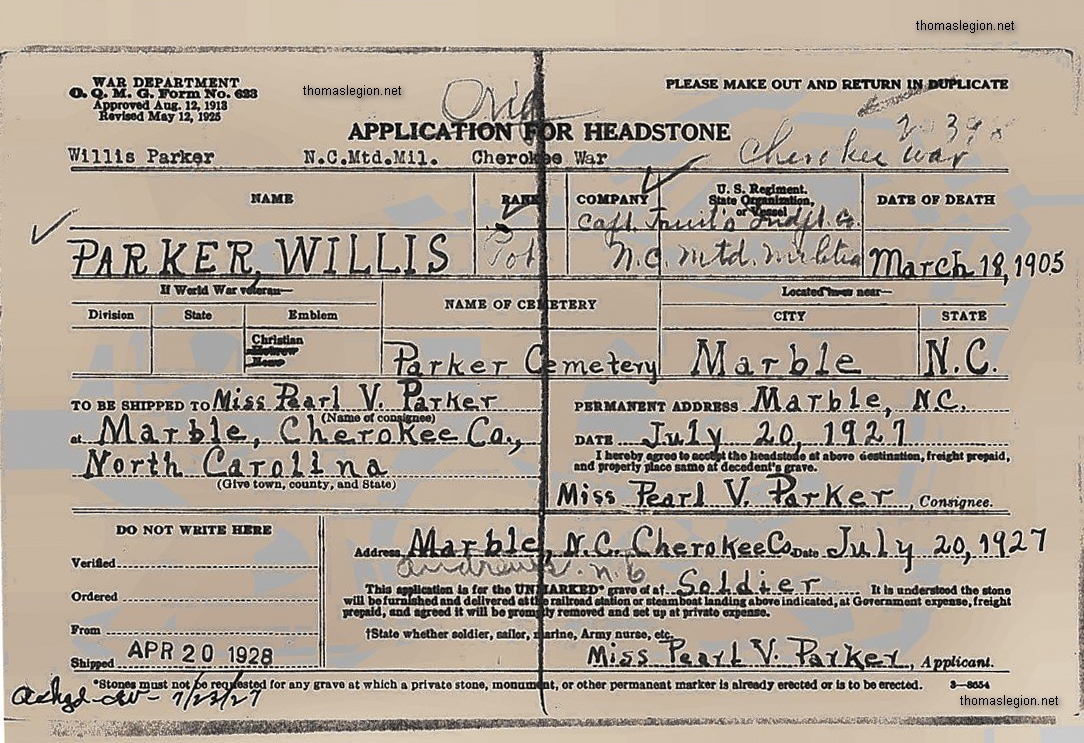 thomaslegion.net
WAR DEPARTMENT
O. Q. M. G. Form No. 623
Approved Aug. 12, 1913
Revised May 12, 1925
thomaslegion.net
PLEASE MAKE OUT AND RETURN IN DUPLICATE
Orig
APPLICATION FOR HEADSTONE
Willis Parker N.C.Mtd.Mil. Cherokee War
Cherokee War
NAME
RANK
COMPANY
U. S. Regiment,
State Organization,
or Vessel
DATE OF DEATH
Capt. Indpt. Co.
PARKER, WILLIS
Pvt
N.C. Mtd. Militia
March 18, 1905
If World War veteran—
NAME OF CEMETERY
Located near—
Division State Emblem
CITY STATE
Christian
Hebrew
None
Parker Cemetery Marble N.C.
TO BE SHIPPED TO Miss Pearl V. Parker
(Name of consignee)
at Marble, Cherokee Co.,
North Carolina
(Give town, county, and State)
PERMANENT ADDRESS Marble, N.C.
DATE July 20, 1927
I hereby agree to accept the headstone at above destination, freight prepaid,
and properly place same at decedent's grave.
Miss Pearl V. Parker, Consignee.
DO NOT WRITE HERE
Verified
Ordered
From
Shipped APR 20 1928
Address Marble, N.C. Cherokee Co. Date July 20, 1927
Andrews N.C
This application is for the UNMARKED* grave of a† Soldier It is understood the stone
will be furnished and delivered at the railroad station or steamboat landing above indicated, at Government expense, freight
prepaid, and agreed it will be promptly removed and set up at private expense.
†State whether soldier, sailor, marine, Army nurse, etc.
Miss Pearl V. Parker, Applicant.
*Stones must not be requested for any grave at which a private stone, monument, or other permanent marker is already erected or is to be erected. 3—8654
7/23/27
thomaslegion.net